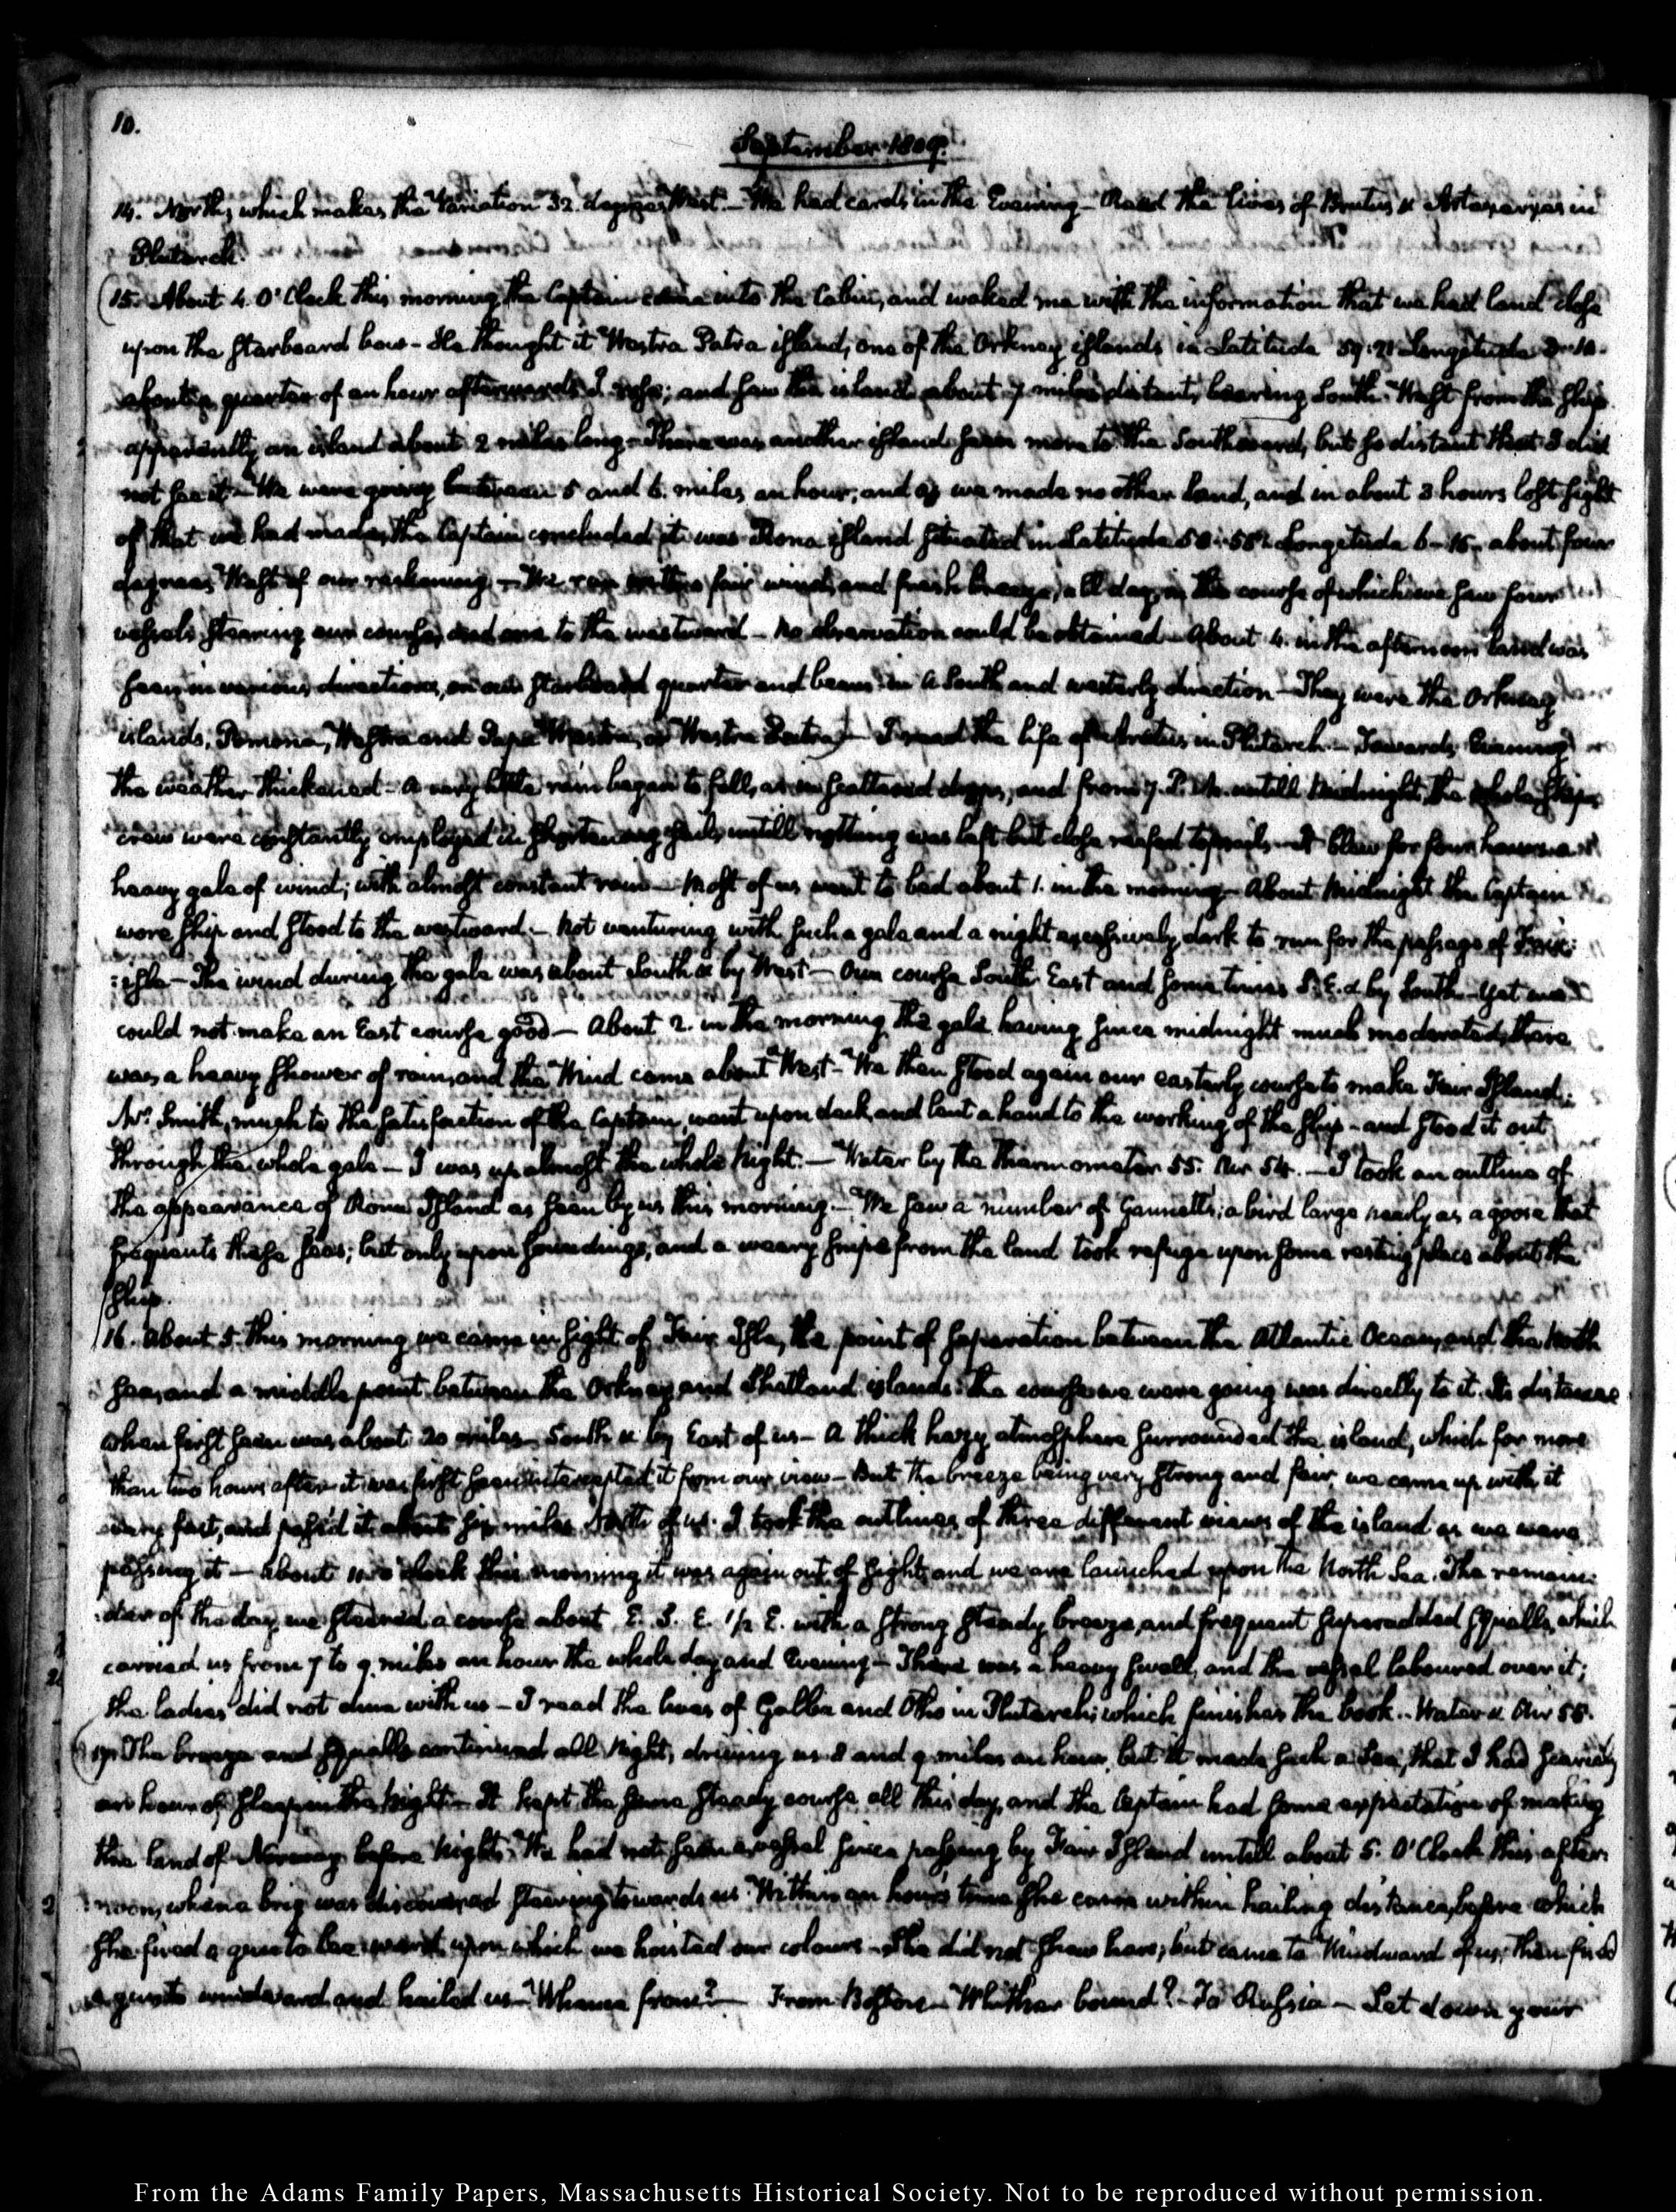 10.
September 1809.
14. North, which makes the Variation 32. degrees West. — We had cards in the Evening — Read the lives of Brutus & Artaxerxes in
Plutarch.
15. About 4. O'Clock this morning the Captain came into the Cabin, and waked me with the information that we had land close
upon the starboard bow — He thought it Westra Patra island, one of the Orkney islands in Latitude 59:21 Longitude
about a quarter of an hour afterwards I rose; and saw the island about 7 miles distant, bearing South-West from the ship
apparently an island about 2 miles long — There was another island seen more to the Southward, but so distant that I did
not see it — We were going between 5 and 6. miles an hour, and as we made no other land, and in about 3 hours lost sight
of that we had made, the Captain concluded it was Rona island situated in Latitude Longitude 6–15– about four
degrees West of our reckoning — We ran with a fair wind, and fresh breeze, all day, in the course of which we saw four
vessels steering our course, and one to the westward — No observation could be obtained — About 4. in the afternoon land was
seen in various directions, on our starboard quarter and beam in a South and westerly direction — They were the Orkney
islands, Pomona, Westra and Papa Westra, or Westra Patra) — I read the life of Aratus in Plutarch. — Towards Evening
the weather thickened — a very little rain began to fall, as in scattered drops, and from 7. P.M. untill Midnight, the whole ship's
crew were constantly employed in shortening sail, untill nothing was left but close reefed topsails — It blew for four hours a
heavy gale of wind; with almost constant rain — Most of us went to bed about 1. in the morning — About Midnight the Captain
wore ship and stood to the westward. — Not venturing with such a gale and a night excessively dark to run for the passage of Fair:
:isle — The wind during the gale was about South & by West — Our course South East and sometimes S.E. & by South — Yet we
could not make an East course good — About 2. in the morning the gale having since midnight much moderated, there
was a heavy shower of rain, and the Wind came about West — We then stood again our easterly course to make Fair Island.
Mr. Smith, much to the satisfaction of the Captain, went upon deck, and lent a hand to the working of the ship — and stood it out
through the whole gale — I was up almost the whole Night. — Water by the thermometer 55. Air 54. — I took an outline of
the appearance of Rona Island as seen by us this morning. — We saw a number of Gannetts; a bird large nearly as a goose that
frequents these seas; but only upon soundings, and a weary snipe from the land took refuge upon some resting place about the
ship.
16. About 5. this morning we came in sight of Fair Isle, the point of separation between the Atlantic Ocean, and the North
Sea, and a middle point between the Orkney and Shetland islands. The course we were going was directly to it. Its distance
when first seen was about 20 miles South & by East of us — A thick hazy atmosphere surrounded the island, which for more
than two hours after it was first seen intercepted it from our view — But the breeze being very strong and fair, we came up with it
very fast, and pass'd it about six miles North of us. I took the outlines of three different views of the island as we were
passing it — About 11. o'clock this morning it was again out of sight, and we are launched upon the North Sea. The remain:
:der of the day we steered a course about E. S. E. 1/2 E. with a strong steady breeze, and frequent superadded squalls, which
carried us from 7 to 9. miles an hour the whole day and Evening — There was a heavy swell, and the vessel laboured over it;
the ladies did not dine with us — I read the lives of Galba and Otho in Plutarch; which finishes the book. — Water & Air 55.
17. The breeze and squalls continued all Night; driving us 8 and 9. miles an hour, but it made such a Sea, that I had scarcely
an hour of sleep in the Night — It kept the same steady course all this day, and the Captain had some expectation of making
the land of Norway before Night. We had not seen a vessel since passing by Fair Island untill about 5. O'Clock this after:
:noon, when a brig was discovered steering towards us. Within an hour's time she came within hailing distance, before which
she fired a gun to leeward, upon which we hoisted our colours — She did not shew hers; but came to Windward of us: then fired
a gun to windward, and hailed us — Whence from? — From Boston — Whither bound? — To Russia — Let down your
From the Adams Family Papers, Massachusetts Historical Society. Not to be reproduced without permission.